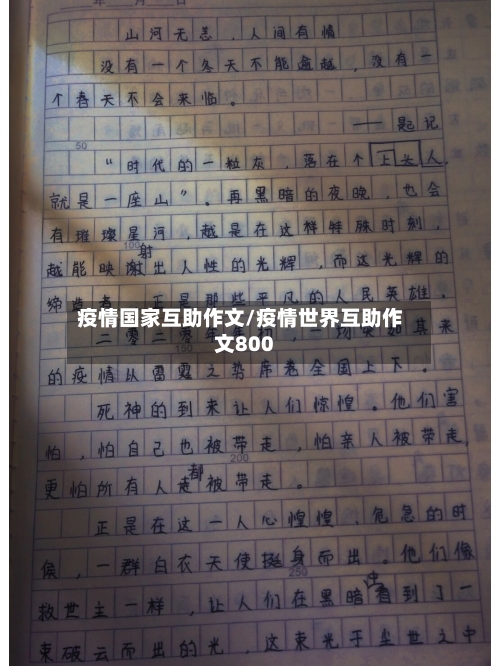 年 月 日
山河无恙，人间有情
没有一个冬天不能逾越，没有一
个春天不会来临。
——题记
50
“时代的一粒灰，落在个上头人，
就是一座山”。再黑暗的夜晚，也会
有璀璨星河，越是在这样特殊时刻，
100
射
越能映出人性的光辉，而这光辉的
缔造者，正是那些平凡的人民英雄。
疫情国家互助作文/疫情世界互助作
文800
二零二零年
一场突如其来
150
的疫情从雷霆之势席卷全国上下。
死神的到来让人们惊惶。他们害
怕，怕自己也被带走，怕亲人被带走，
200
都
更怕所有人被带走。
正是在这一人心惶惶、危急的时
候，一群白衣天使挺身而出。他们像
250
中
救世主一样，让人们在黑暗看到了一
束破云而出的光，这束光于尘世之中